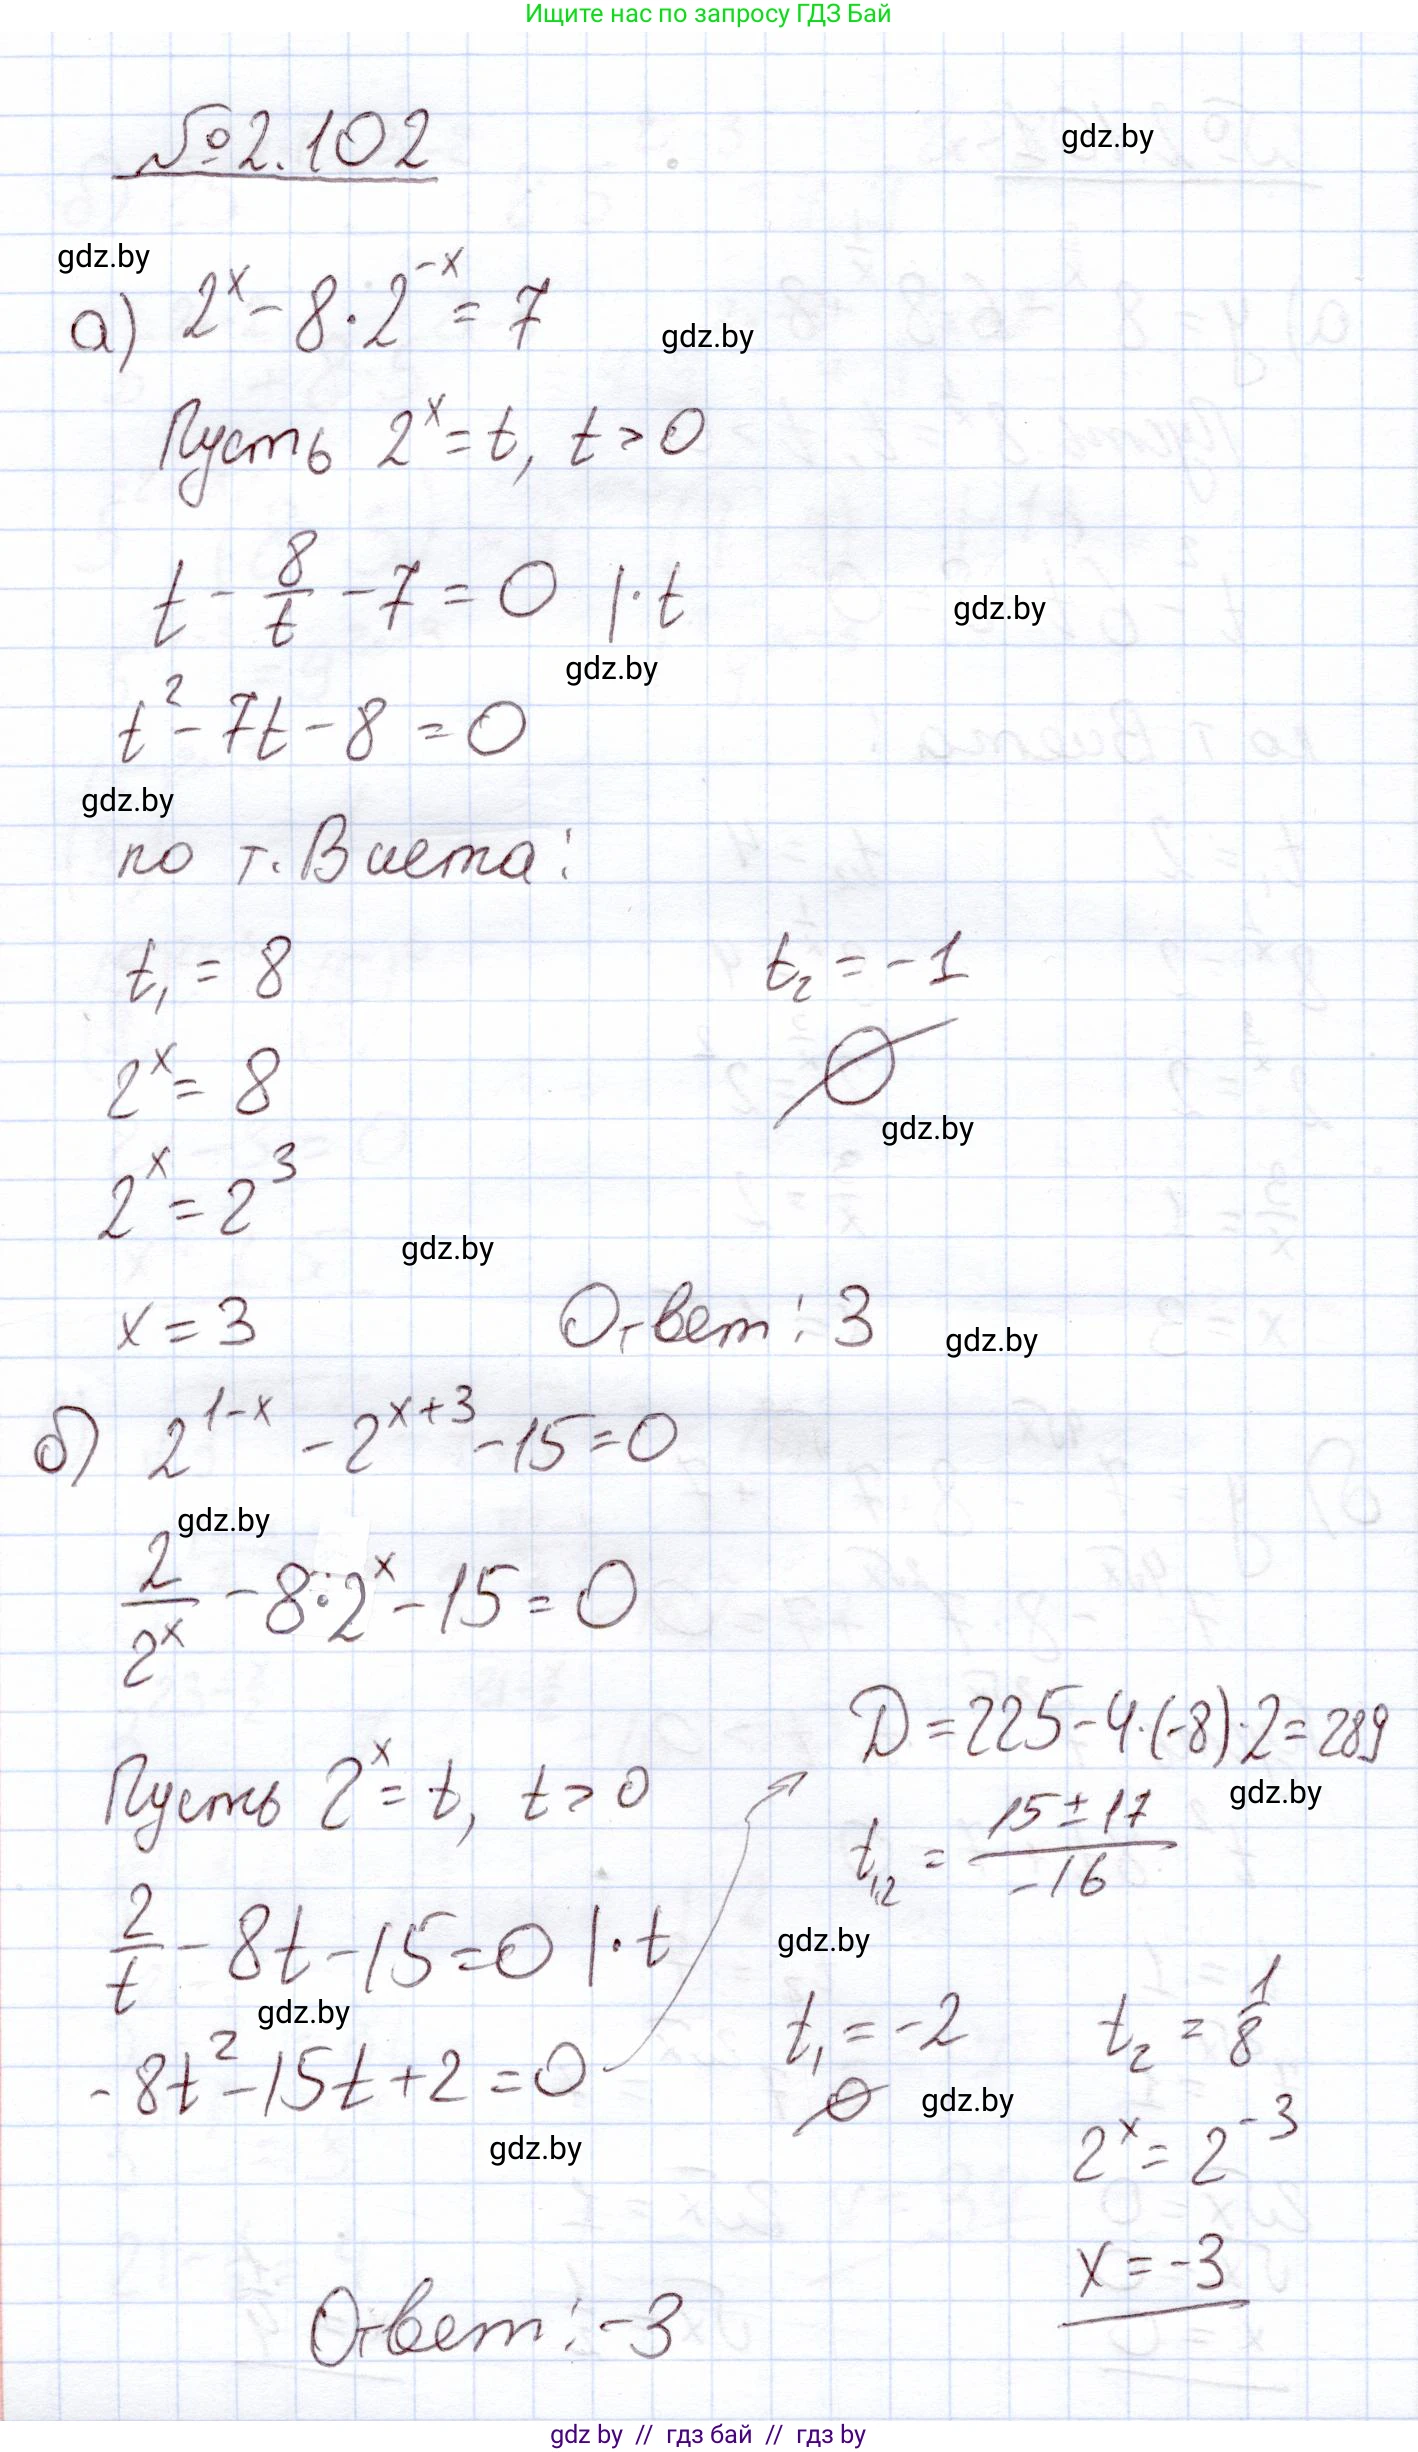 Ищите нас по запросу ГДЗ Бай
№2.102
gdz.by
gdz.by
а) 2^x - 8·2^{-x} = 7
gdz.by
Пусть 2^x = t, t > 0
t - 8/t - 7 = 0 |·t
gdz.by
gdz.by
t^2 - 7t - 8 = 0
gdz.by
по т. Виета:
t₁ = 8 t₂ = -1
2^x = 8 ∅
gdz.by
2^x = 2^3
gdz.by
x = 3 Ответ: 3
gdz.by
б) 2^{1-x} - 2^{x+3} - 15 = 0
gdz.by
2/2^x - 8·2^x - 15 = 0
D = 225 - 4·(-8)·2 = 289
gdz.by
Пусть 2^x = t, t > 0
t₁,₂ = (15 ± 17)/-16
gdz.by
2/t - 8t - 15 = 0 |·t
gdz.by
t₁ = -2 t₂ = 1/8
-8t^2 - 15t + 2 = 0
∅
gdz.by
gdz.by
2^x = 2^{-3}
x = -3
Ответ: -3
gdz by // гдз бай // гдз by